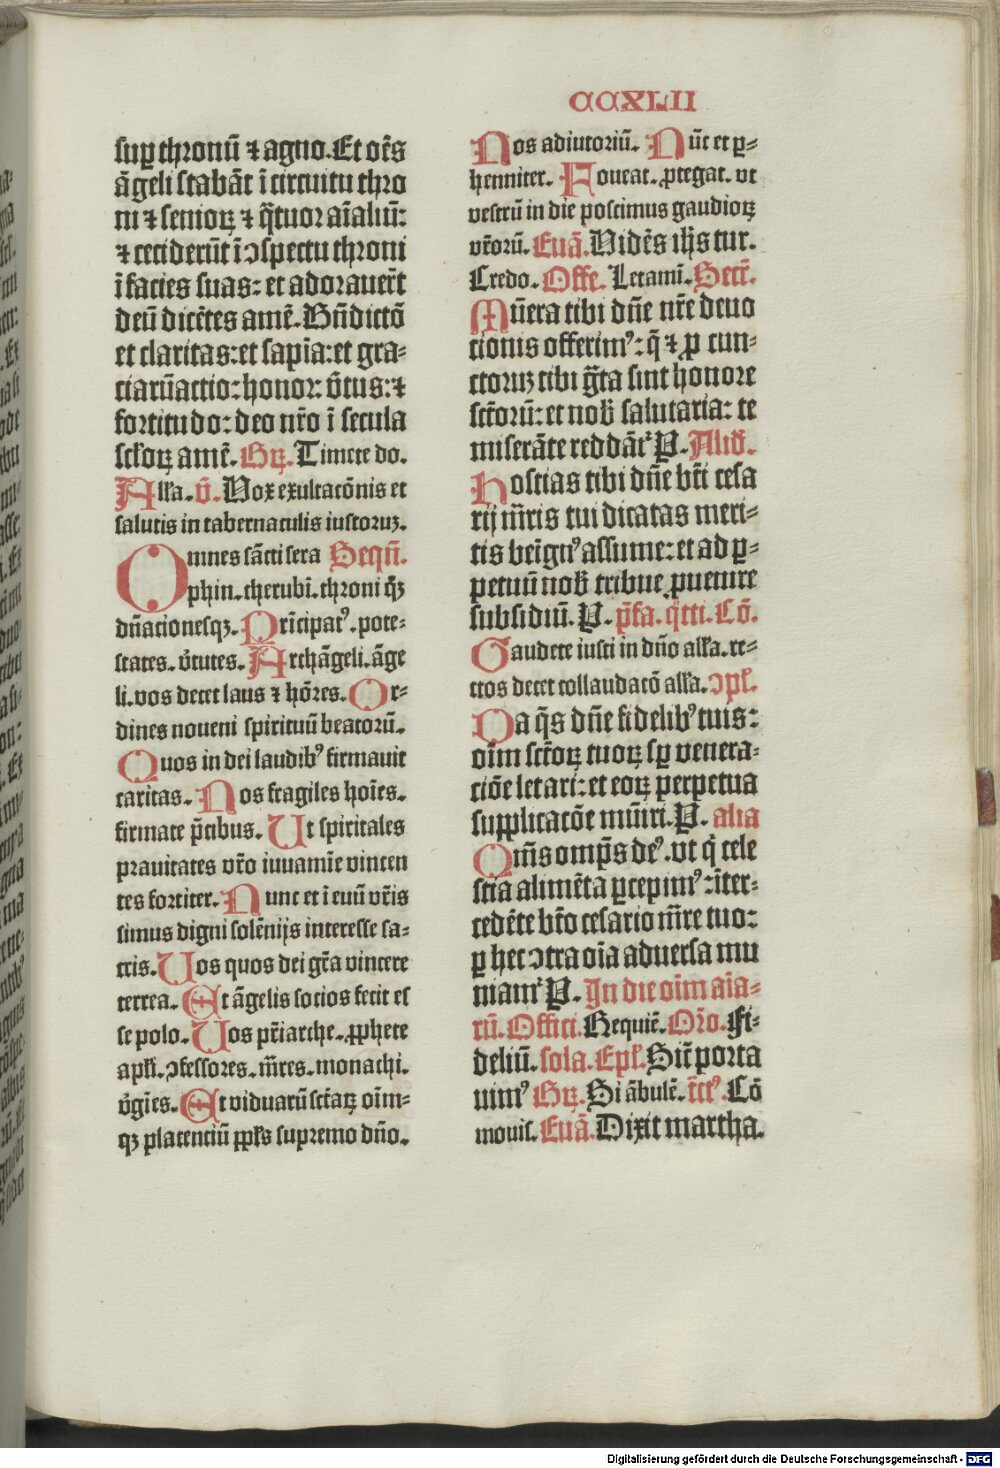 CCXLII
suꝑ thronū ⁊ agno. Et oēs
āgeli stabāt ī circuitu thro
ni ⁊ senioꝝ ⁊ q̄tuor aīaliū:
⁊ ceciderūt ī ɔspectu throni
ī facies suas: et adorauer̄t
deū dicētes amē. Bn̄dictō
et claritas: et sapīa: et gra-
ciarūactio: honor: v̄tus: ⁊
fortitudo: deo nr̄o ī secula
scl̄oꝝ amē. Gꝝ. Timete do.
All̄a. v̄. Vox exultacōnis et
salutis in tabernaculis iustoruꝫ.
Omnes sācti sera Seqū.
phin. cherubī. throni q̄ꝫ
dn̄acionesqꝫ. Prīcipatꝰ. pote-
states. v̄tutes. Archāgeli. āge
li. vos decet laus ⁊ hōres. Or-
dines noueni spirituū beatorū.
Quos in dei laudibꝰ firmauit
caritas. Nos fragiles hoīes.
firmate p̄cibus. Ut spiritales
prauitates vr̄o iuuamīe vincen
tes fortiter. Nunc et ī euū vr̄is
simus digni solēnijs interesse sa-
cris. Uos quos dei gr̄a vincere
terrea. Et āgelis socios fecit es
se polo. Uos pr̄iarche. ꝓphete
apl̄i. ɔfessores. m̄res. monachi.
v̄gīes. Et viduarū sct̄aꝝ oīm-
qꝫ placenciū ꝓpl̄s supremo dn̄o.
Nos adiutoriū. Nūc et ꝑ-
henniter. Foueat. ꝓtegat. vt
vestrū in die poscimus gaudioꝝ
vērorū. Euā. Vidēs ih̄s tur.
Credo. Offe. Letamī. Secr̄.
Mūera tibi dn̄e nr̄e deuo
cionis offerimꝰ: q̄ ⁊ ꝓ cun-
ctoruꝫ tibi gr̄ta sint honore
sct̄orū: et nob̄ salutaria: te
miserāte reddātr̄ P. Aliud̄.
Hostias tibi dn̄e bt̄i cesa
rij m̄ris tui dicatas meri-
tis beīgnꝰ assume: et ad ꝑ-
petuū nob̄ tribue ꝓuenire
subsidiū. P. p̄fa. q̄tti. Cō.
Gaudete iusti in dn̄o all̄a. re-
ctos decet collaudacō all̄a. ɔpl̄.
Da q̄s dn̄e fidelibꝰ tuis:
oīm sct̄oꝝ tuoꝝ sꝑ venera-
ciōe letari: et eoꝝ perpetua
supplicacōe mūiri. P. alia
Om̄s omp̄s deꝰ. vt q̄ cele
stia alimēta ꝑcepimꝰ: īter-
cedēte bt̄o cesario m̄re tuo:
ꝑ hec ɔtra oīa aduersa mu
niamr̄ P. In die oīm aīa-
rū. Offici. Requiē. Orō. Fi-
deliū. sola. Epl̄. Sic̄ porta
uimꝰ Gꝝ. Si ābulē. tc̄tꝰ. Cō
mouis. Euā. Dixit martha.
Digitalisierung gefördert durch die Deutsche Forschungsgemeinschaft - DFG